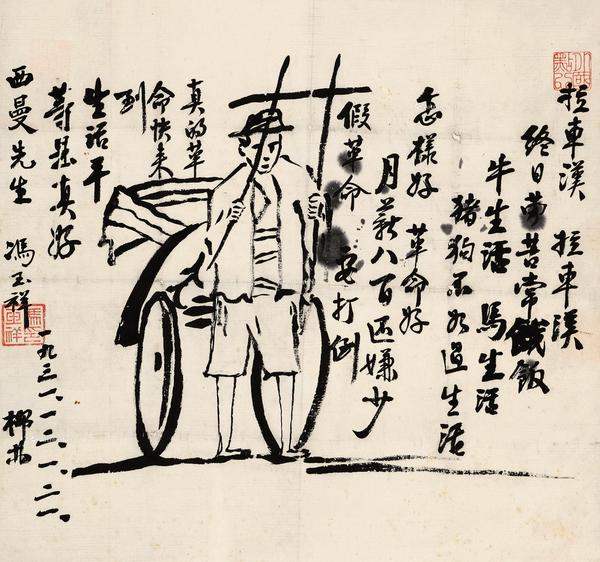 拉車漢 拉車漢
終日勞苦常餓飯
牛生活 馬生活
豬狗不如過生活
怎樣好 革命好
月薪八百還嫌少
假革命 要打倒
真的革
命快來
到
生活平
等是真好
西曼先生 馮玉祥
一九三一